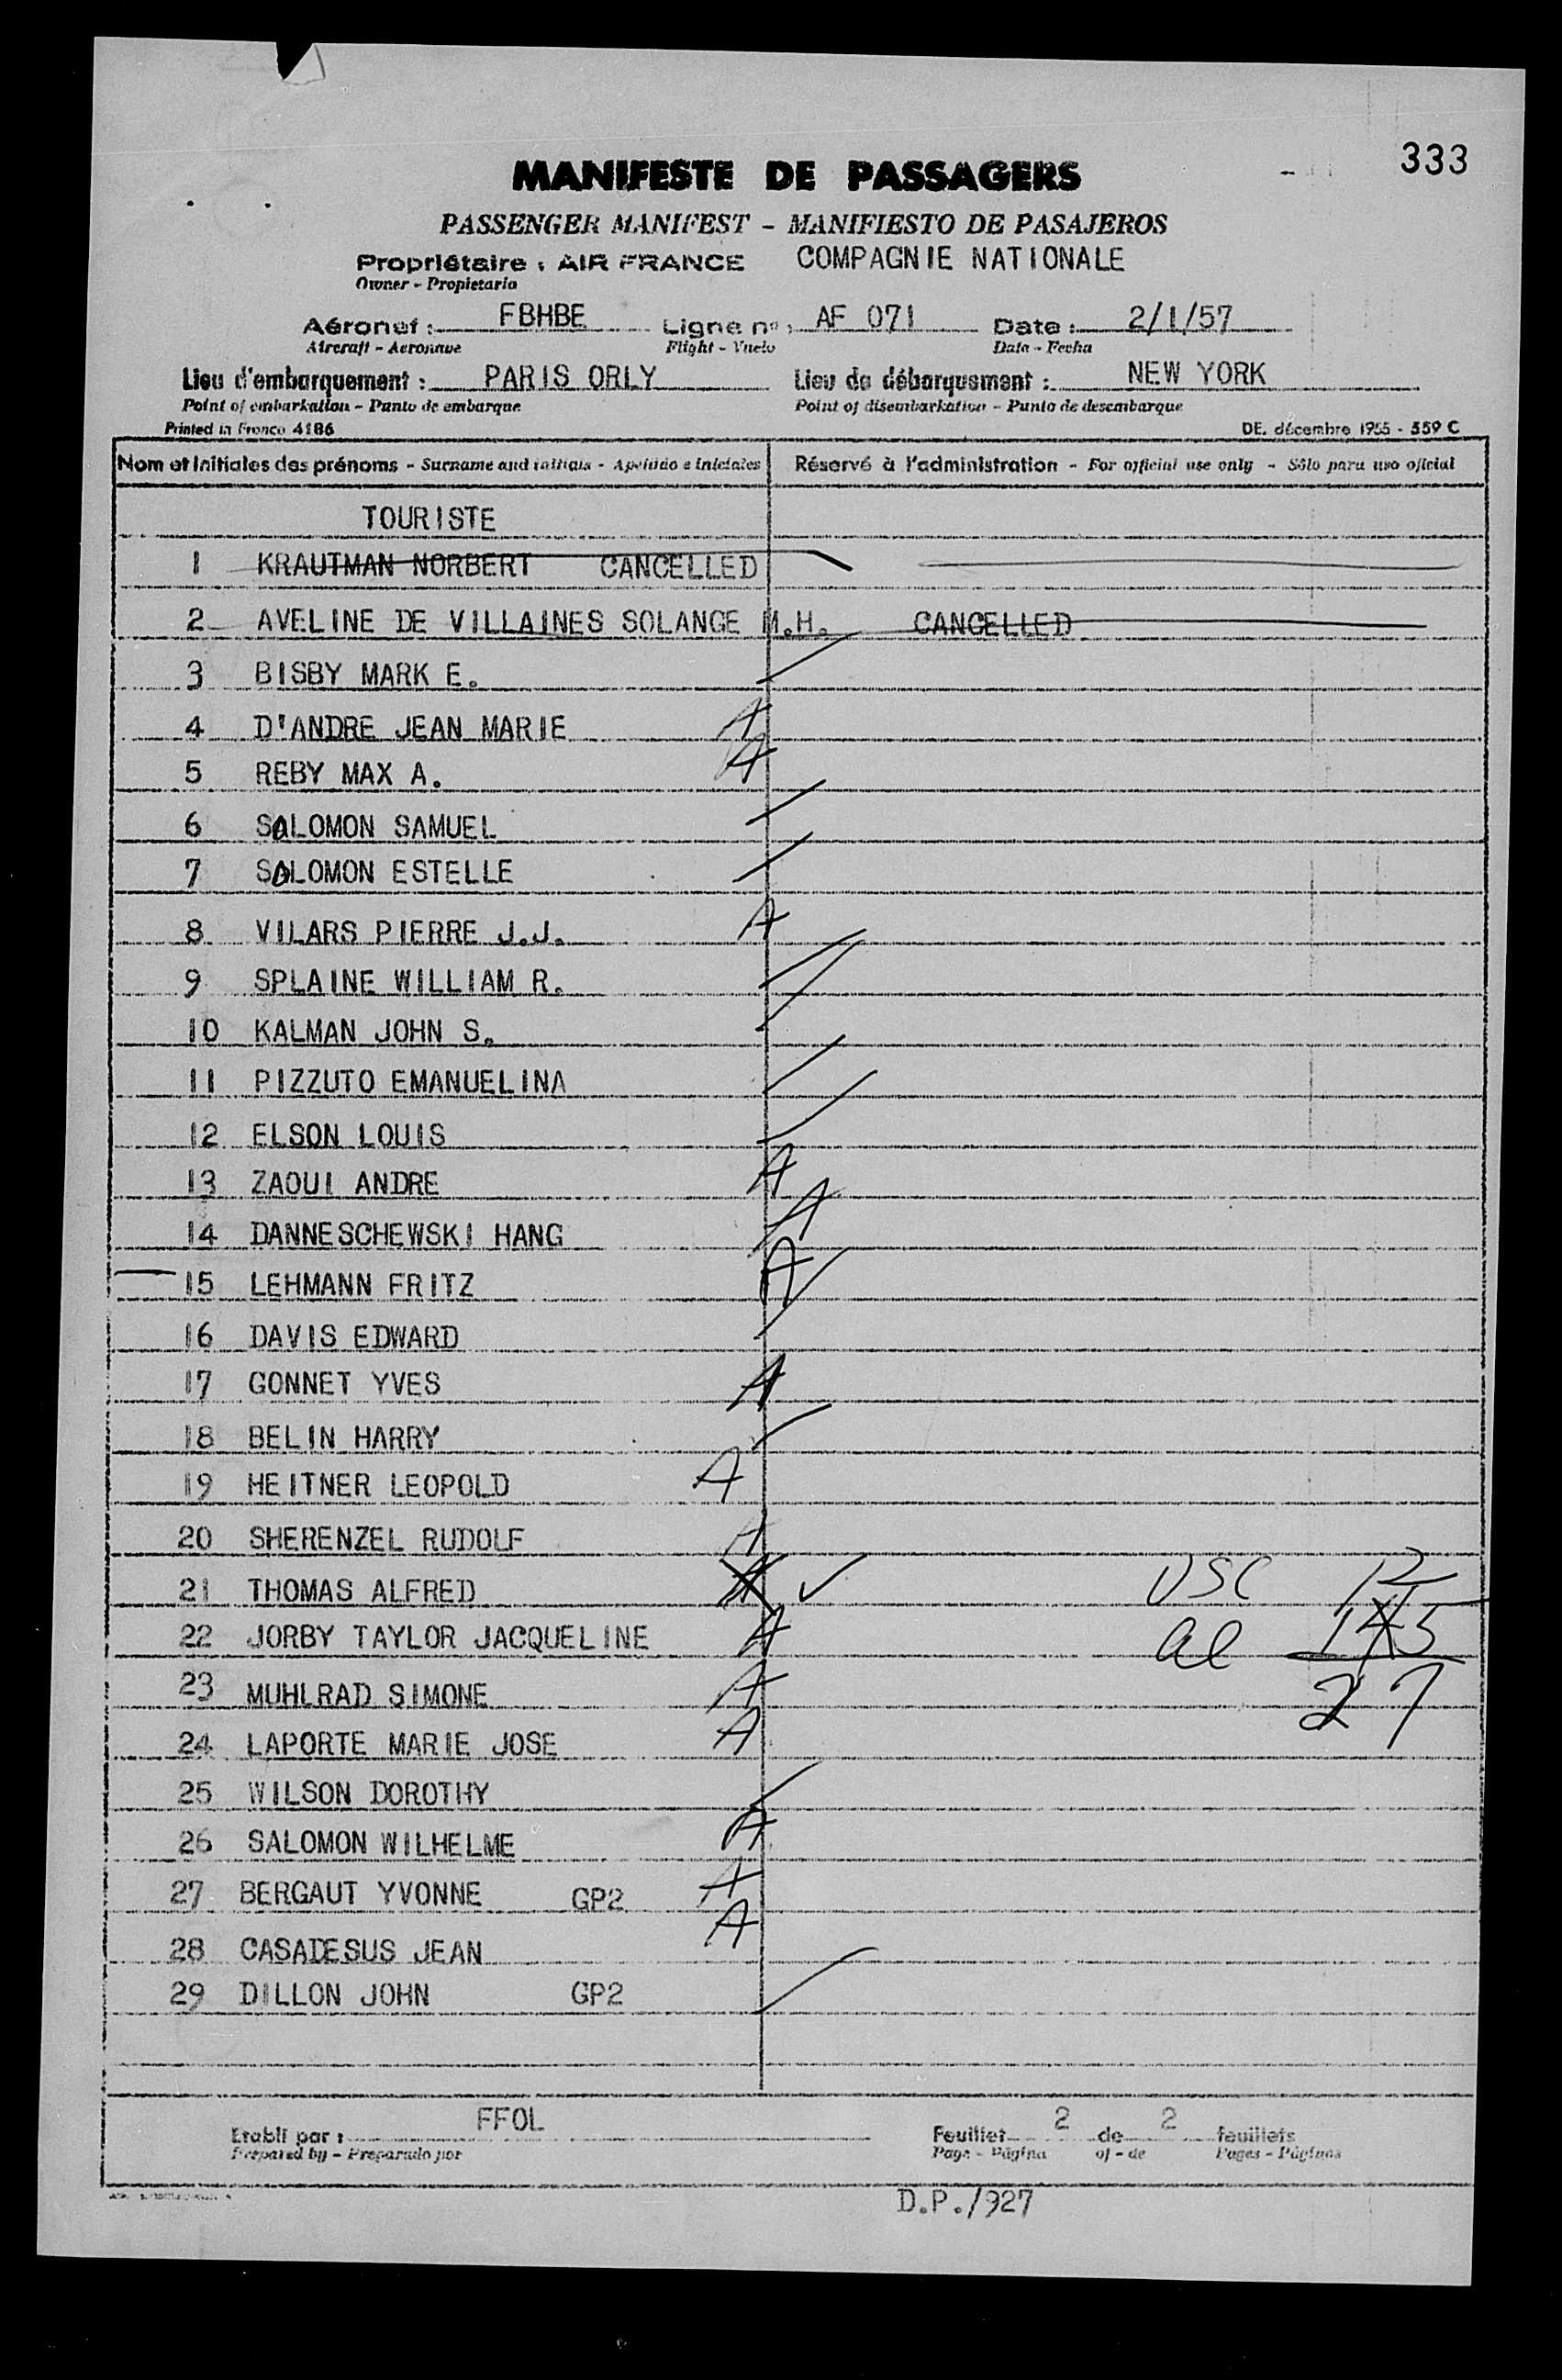 333
MANIFESTE DE PASSAGERS
PASSENGER MANIFEST - MANIFIESTO DE PASAJEROS
Propriétaire : AIR FRANCE COMPAGNIE NATIONALE
Owner - Propietario
Aéronef : FBHBE Ligne nº : AF 071 Date : 2/1/57
Aircraft - Aeronave Flight - Vuelo Date - Fecha
Lieu d'embarquement : PARIS ORLY Lieu de débarquement : NEW YORK
Point of embarkation - Punto de embarque Point of disembarkation - Punto de desembarque
Printed in France 4186 DE. décembre 1955 - 559 C
Nom et initiales des prénoms - Surname and initials - Apellido e iniciales Réservé à l'administration - For official use only - Sólo para uso oficial
TOURISTE
1 KRAUTMAN NORBERT CANCELLED
2 AVELINE DE VILLAINES SOLANGE M.H. CANCELLED
3 BISBY MARK E.
4 D'ANDRE JEAN MARIE A
5 REBY MAX A. A
6 SALOMON SAMUEL
7 SALOMON ESTELLE
8 VILARS PIERRE J.J. A
9 SPLAINE WILLIAM R.
10 KALMAN JOHN S.
11 PIZZUTO EMANUELINA
12 ELSON LOUIS
13 ZAOUI ANDRE A
14 DANNESCHEWSKI HANG A
15 LEHMANN FRITZ A
16 DAVIS EDWARD
17 GONNET YVES A
18 BELIN HARRY
19 HEITNER LEOPOLD A
20 SHERENZEL RUDOLF A
21 THOMAS ALFRED A ✓ USC 12
22 JORBY TAYLOR JACQUELINE A al 15
23 MUHLRAD SIMONE A 27
24 LAPORTE MARIE JOSE A
25 WILSON DOROTHY
26 SALOMON WILHELME A
27 BERGAUT YVONNE GP2 A
28 CASADESUS JEAN A
29 DILLON JOHN GP2
Etabli par : FFOL Feuillet 2 de 2 feuillets
Prepared by - Preparado por Page - Página of - de Pages - Páginas
D.P./927